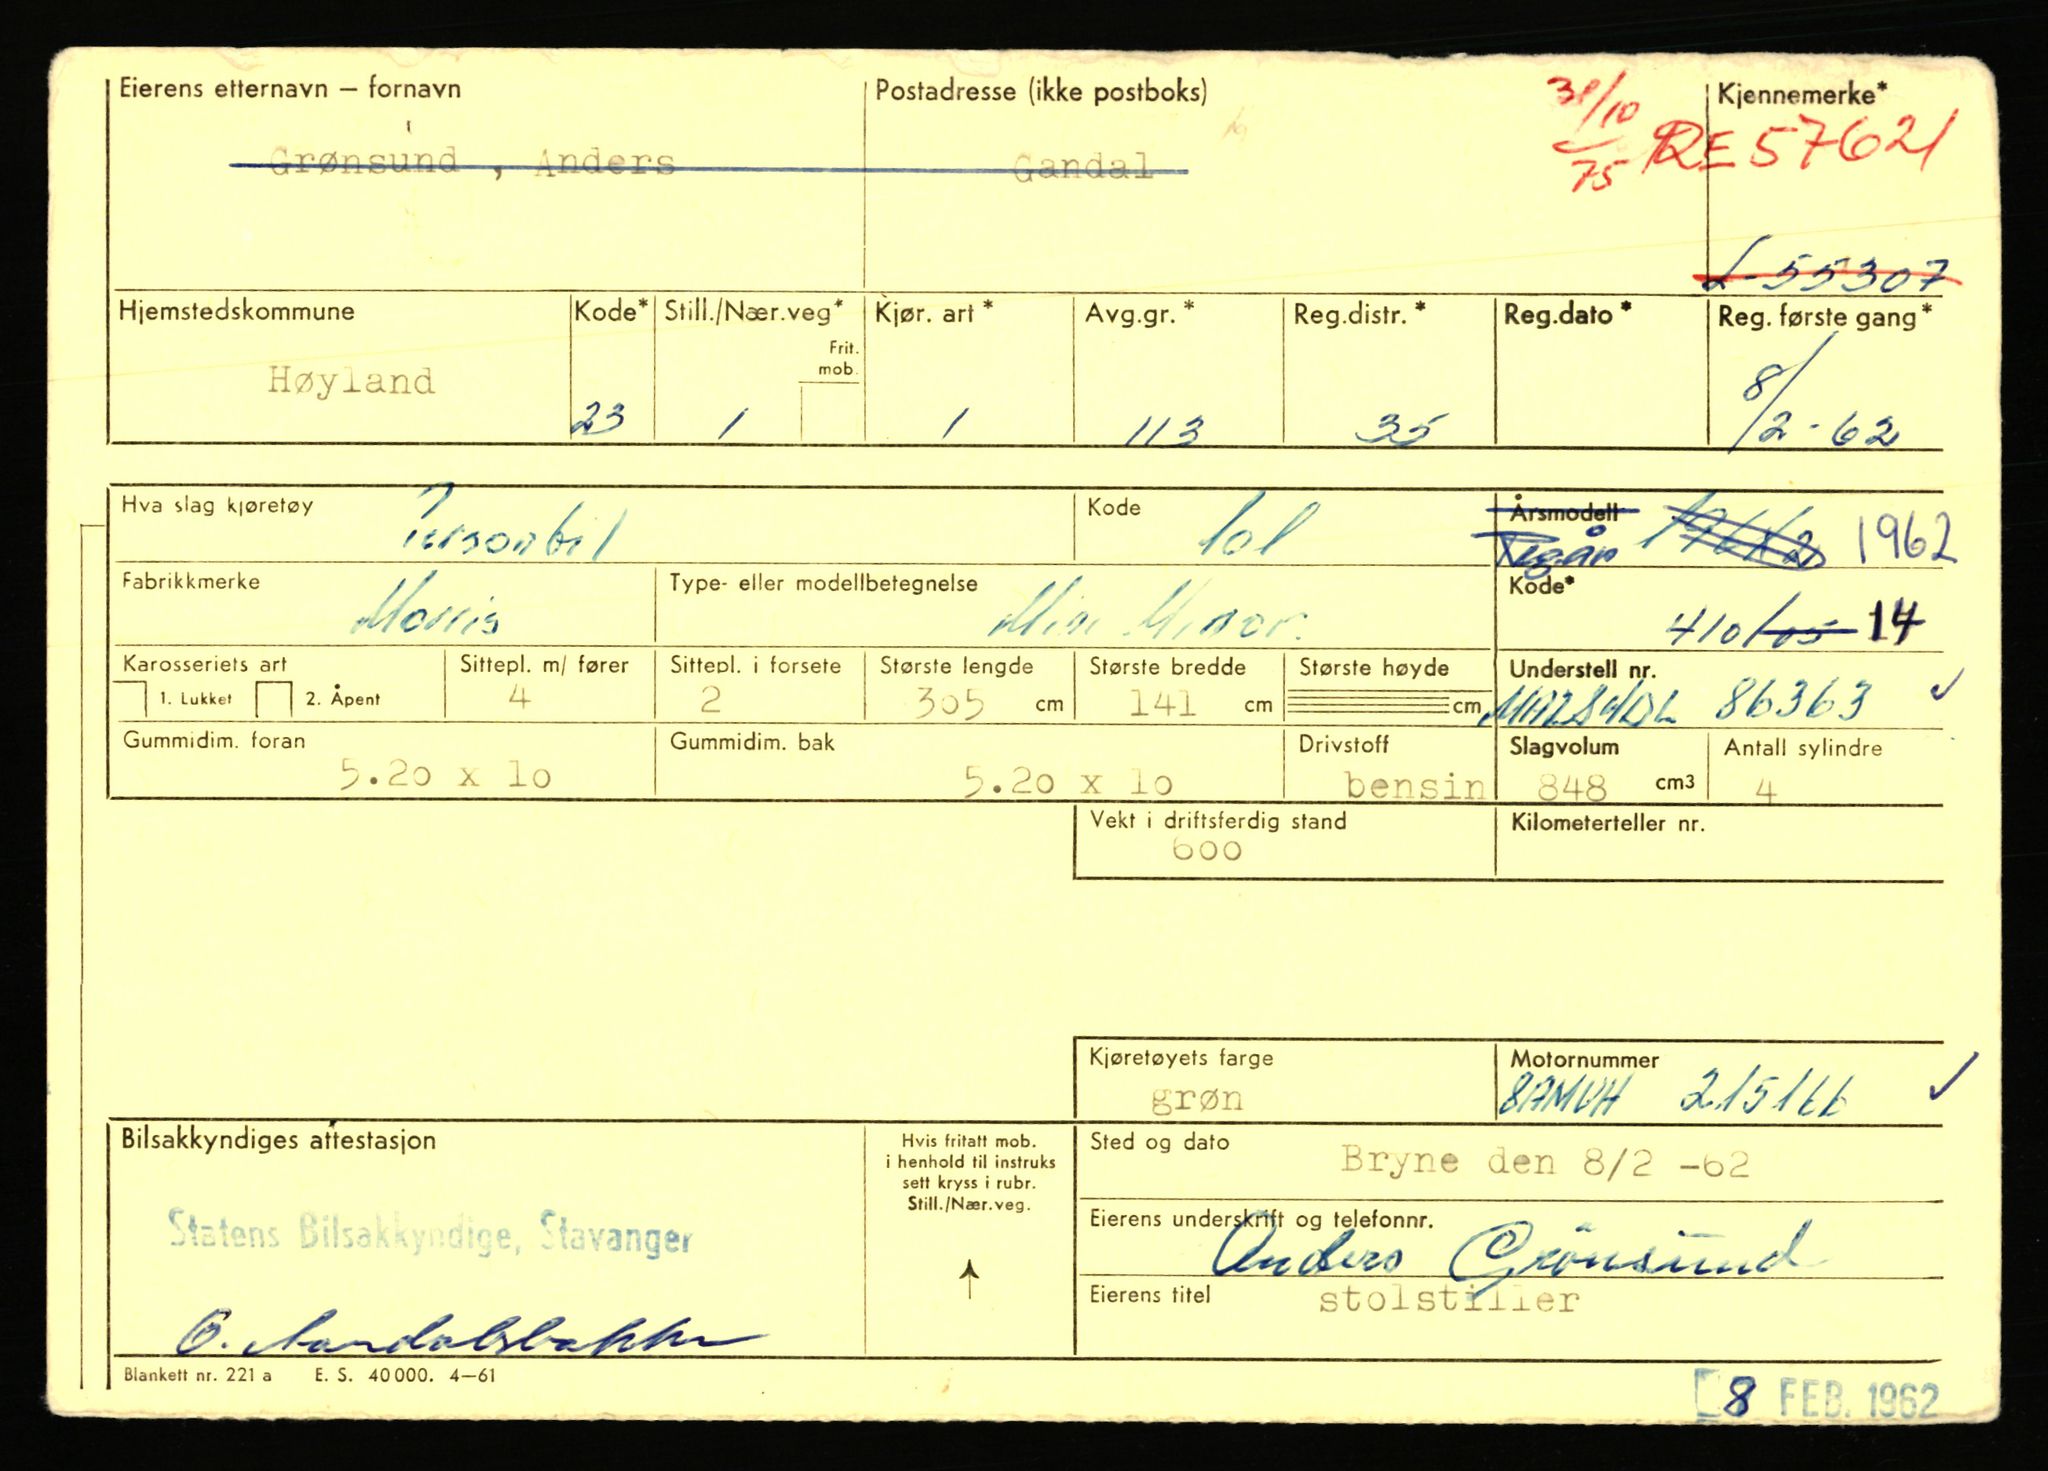 Eierens etternavn – fornavn
Postadresse (ikke postboks)
31/10 75
Kjennemerke*
RE 57621
Grønsund , Anders
Gandal
L-55307
Hjemstedskommune
Kode*
Still./Nær.veg*
Frit. mob.
Kjør. art*
Avg.gr.*
Reg.distr.*
Reg.dato*
Reg. første gang*
Høyland
23
1
1
113
35
8/2-62
Hva slag kjøretøy
Personbil
Kode
101
Årsmodell
Regår
1962
Fabrikkmerke
Morris
Type- eller modellbetegnelse
Mini Minor.
Kode*
410/05 14
Karosseriets art
1. Lukket
2. Åpent
Sittepl. m/ fører
4
Sittepl. i forsete
2
Største lengde
305 cm
Største bredde
141 cm
Største høyde
cm
Understell nr.
86363
Gummidim. foran
5.20 x 10
Gummidim. bak
5.20 x 10
Drivstoff
bensin
Slagvolum
848 cm3
Antall sylindre
4
Vekt i driftsferdig stand
600
Kilometerteller nr.
Kjøretøyets farge
grøn
Motornummer
8AMUH 215166
Bilsakkyndiges attestasjon
Statens Bilsakkyndige, Stavanger
Hvis fritatt mob.
i henhold til instruks
sett kryss i rubr.
Still./Nær.veg.
Sted og dato
Bryne den 8/2 -62
Eierens underskrift og telefonnr.
Anders Grönsund
Eierens titel
stolstiller
Blankett nr. 221 a E. S. 40 000. 4–61
8 FEB. 1962